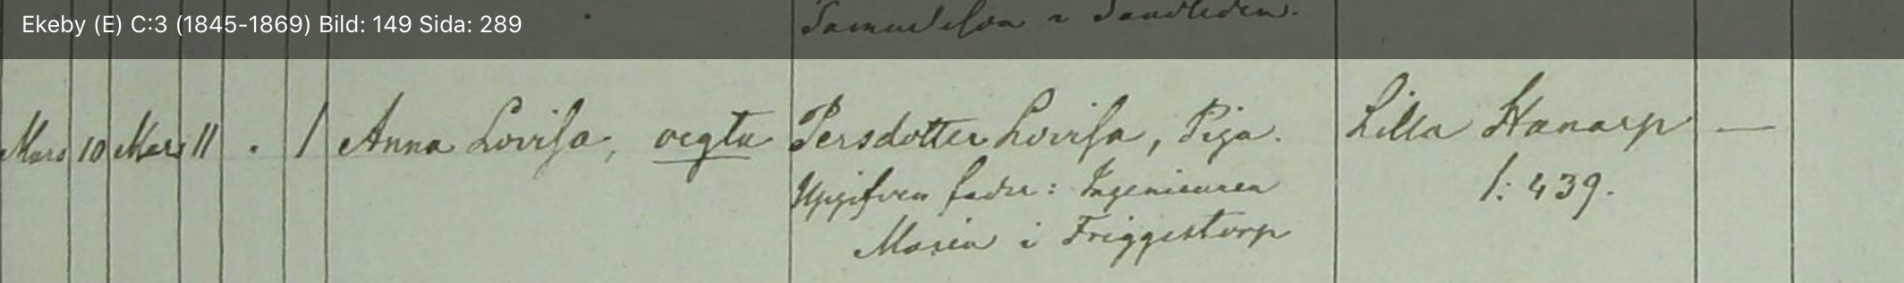 Ekeby (E) C:3 (1845-1869) Bild: 149 Sida: 289
Samuelsson i Sandleden.
Mars 10 Mars 11 . 1 Anna Lovisa, oegta Persdotter Lovisa, Piga. Lilla Hanarp —
Uppgifven fader: Ingenieuren 1: 439.
i Friggestorp